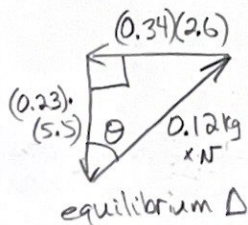 (0.34)(2.6)
(0.23)·
(5.5)
θ
0.12kg
× N
equilibrium Δ